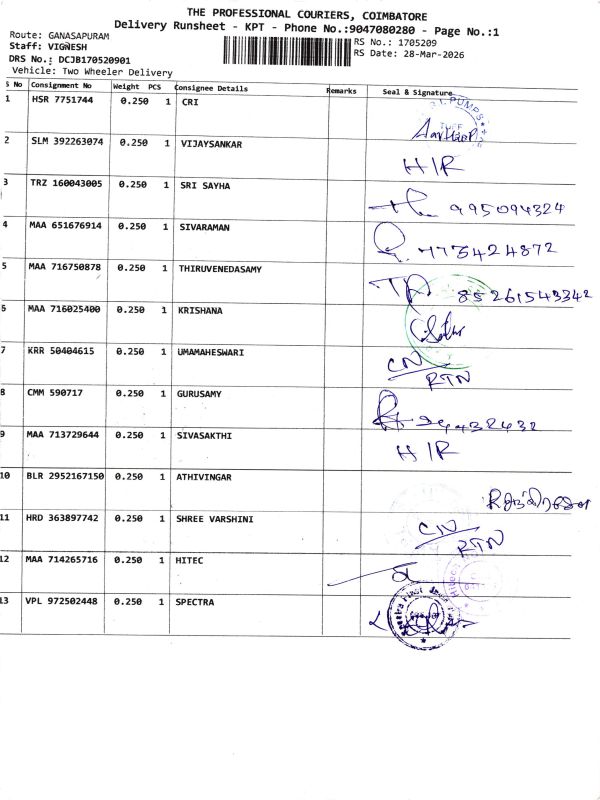 THE PROFESSIONAL COURIERS, COIMBATORE
Delivery Runsheet - KPT - Phone No.:9047080280 - Page No.:1
Route: GANASAPURAM
Staff: VIGNESH
DRS No.: DCJB170520901
Vehicle: Two Wheeler Delivery
RS No.: 1705209
RS Date: 28-Mar-2026
S No Consignment No Weight PCS Consignee Details Remarks Seal & Signature
1 HSR 7751744 0.250 1 CRI
2 SLM 392263074 0.250 1 VIJAYSANKAR H/R
3 TRZ 160043005 0.250 1 SRI SAYHA 995094324
4 MAA 651676914 0.250 1 SIVARAMAN
5 MAA 716750878 0.250 1 THIRUVENEDASAMY 85261543342
6 MAA 716025400 0.250 1 KRISHANA
7 KRR 50404615 0.250 1 UMAMAHESWARI CN/RTN
8 CMM 590717 0.250 1 GURUSAMY
9 MAA 713729644 0.250 1 SIVASAKTHI H/R
10 BLR 2952167150 0.250 1 ATHIVINGAR
11 HRD 363897742 0.250 1 SHREE VARSHINI CN/RTN
12 MAA 714265716 0.250 1 HITEC
13 VPL 972502448 0.250 1 SPECTRA